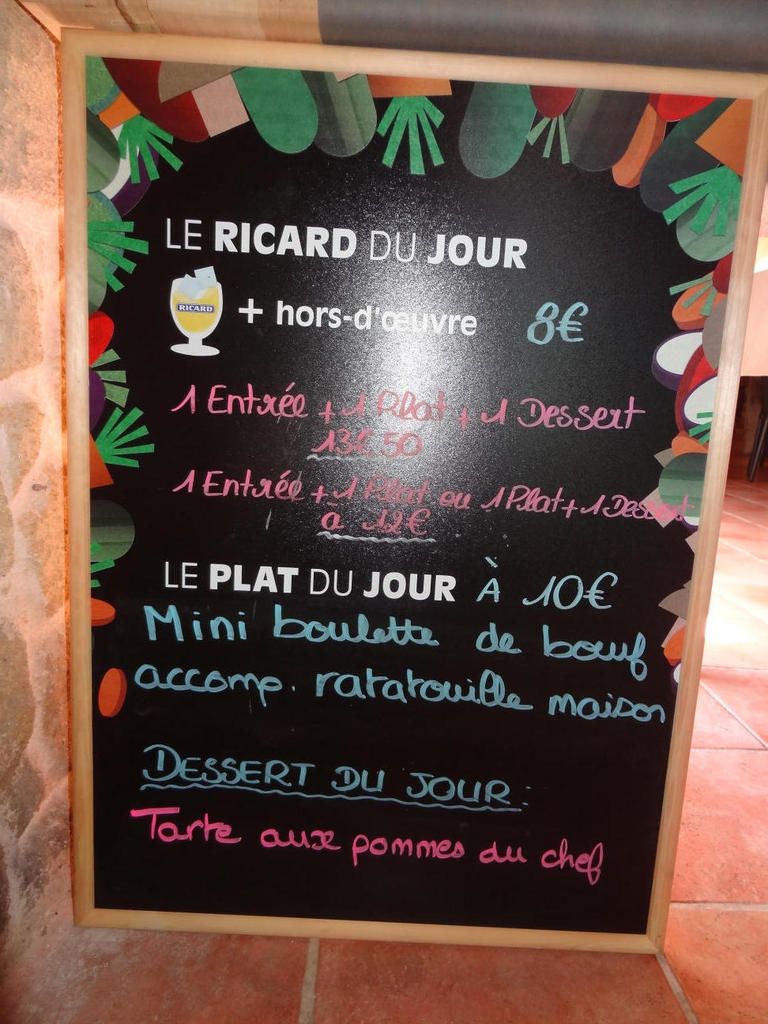 LE RICARD DU JOUR
RICARD
+ hors-d'œuvre 8€
1 Entrée + 1 Plat + 1 Dessert
13€50
1 Entrée + 1 Plat ou 1 Plat + 1 Dessert
a 12€
LE PLAT DU JOUR À 10€
Mini boulette de bœuf
accomp. ratatouille maison
DESSERT DU JOUR:
Tarte aux pommes du chef